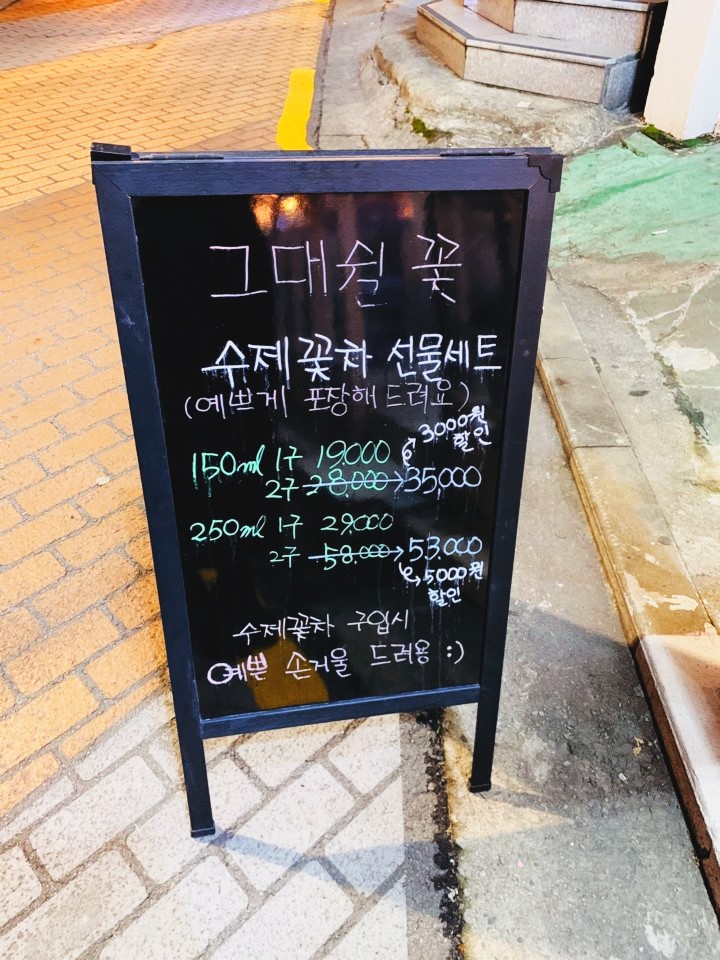 그대쉴 꽃
수제꽃차 선물세트
(예쁘게 포장해 드려요)
3000원
할인
150ml 1구 19,000
2구 38,000 → 35,000
250ml 1구 29,000
2구 58,000 → 53,000
5000원
할인
수제꽃차 구입시
예쁜 손거울 드려용 :)